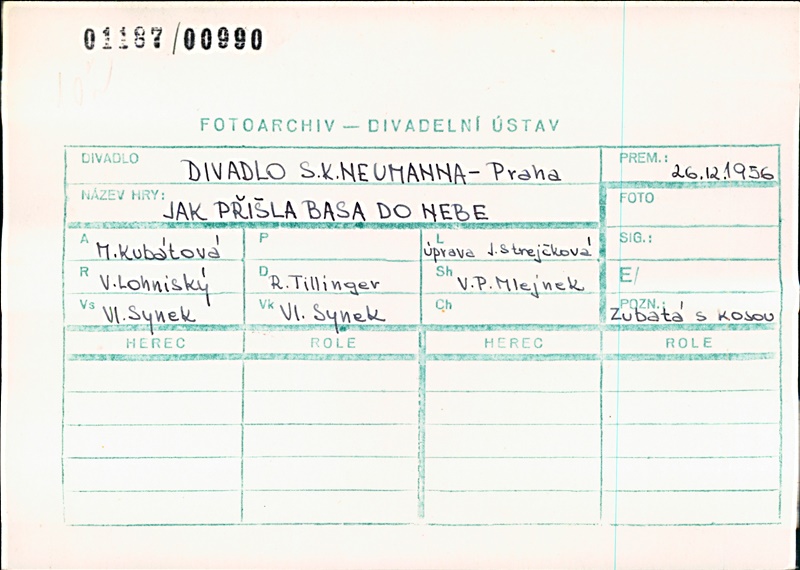 01187/00990
FOTOARCHIV — DIVADELNÍ ÚSTAV
DIVADLO DIVADLO S.K.NEUMANNA - Praha PREM.: 26.12.1956
NÁZEV HRY: JAK PŘIŠLA BASA DO NEBE FOTO
A M.Kubátová P L úprava J.Strejčková SIG.:
R V.Lohniský D R.Tillinger Sh V.P.Mlejnek E/
Vs Vl.Synek Vk Vl.Synek Ch POZN.: Zubatá s kosou
HEREC ROLE HEREC ROLE